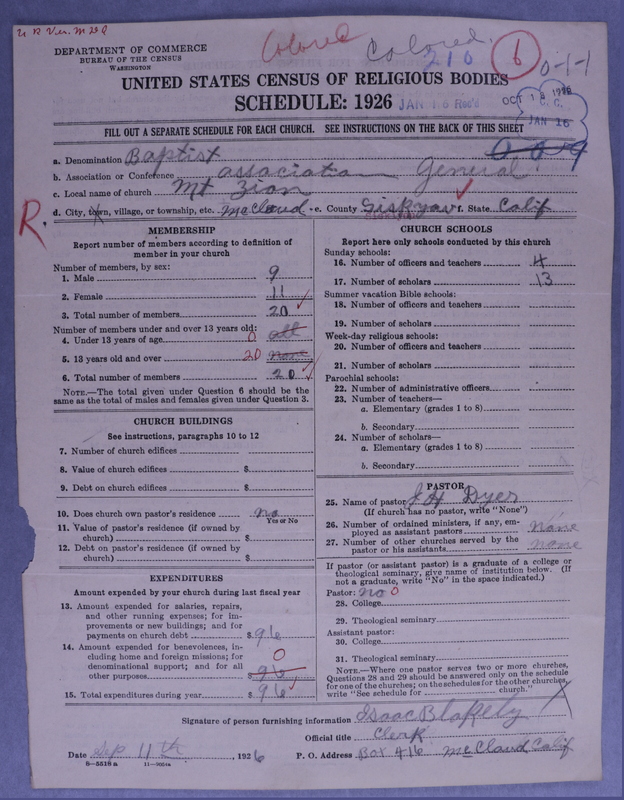 DEPARTMENT OF COMMERCE
BUREAU OF THE CENSUS
WASHINGTON
Colored
Colored.
210
6
0-1-1
UNITED STATES CENSUS OF RELIGIOUS BODIES
SCHEDULE: 1926
JAN 16 Rec'd
OCT 18 1926
C. C.
JAN 16
FILL OUT A SEPARATE SCHEDULE FOR EACH CHURCH. SEE INSTRUCTIONS ON THE BACK OF THIS SHEET
a. Denomination Baptist
009
b. Association or Conference association General
c. Local name of church Mt Zian
d. City, town, village, or township, etc. McCloud e. County Siskyav f. State Calif
R.
MEMBERSHIP
Report number of members according to definition of
member in your church
Number of members, by sex:
1. Male 9
2. Female 11
3. Total number of members 20
Number of members under and over 13 years old:
4. Under 13 years of age 0 all
5. 13 years old and over 20 none
6. Total number of members 20
NOTE.—The total given under Question 6 should be the
same as the total of males and females given under Question 3.
CHURCH BUILDINGS
See instructions, paragraphs 10 to 12
7. Number of church edifices
8. Value of church edifices $
9. Debt on church edifices $
10. Does church own pastor's residence no
Yes or No
11. Value of pastor's residence (if owned by
church) $
12. Debt on pastor's residence (if owned by
church) $
EXPENDITURES
Amount expended by your church during last fiscal year
13. Amount expended for salaries, repairs,
and other running expenses; for im-
provements or new buildings; and for
payments on church debt $96
14. Amount expended for benevolences, in-
cluding home and foreign missions; for
denominational support; and for all
other purposes $96 0
15. Total expenditures during year $96
CHURCH SCHOOLS
Report here only schools conducted by this church
Sunday schools:
16. Number of officers and teachers 4
17. Number of scholars 13
Summer vacation Bible schools:
18. Number of officers and teachers
19. Number of scholars
Week-day religious schools:
20. Number of officers and teachers
21. Number of scholars
Parochial schools:
22. Number of administrative officers
23. Number of teachers—
a. Elementary (grades 1 to 8)
b. Secondary
24. Number of scholars—
a. Elementary (grades 1 to 8)
b. Secondary
PASTOR
25. Name of pastor J H Dyer
(If church has no pastor, write "None")
26. Number of ordained ministers, if any, em-
ployed as assistant pastors none
27. Number of other churches served by the
pastor or his assistants none
If pastor (or assistant pastor) is a graduate of a college or
theological seminary, give name of institution below. (If
not a graduate, write "No" in the space indicated.)
Pastor: no 0
28. College
29. Theological seminary
Assistant pastor:
30. College
31. Theological seminary
NOTE.—Where one pastor serves two or more churches,
Questions 28 and 29 should be answered only on the schedule
for one of the churches; on the schedules for the other churches,
write "See schedule for church."
Signature of person furnishing information Isaac Blakely
Official title Clerk
Date Sep 11th, 1926 P. O. Address Box 416 McCloud Calif
8-5518a 11-9064a